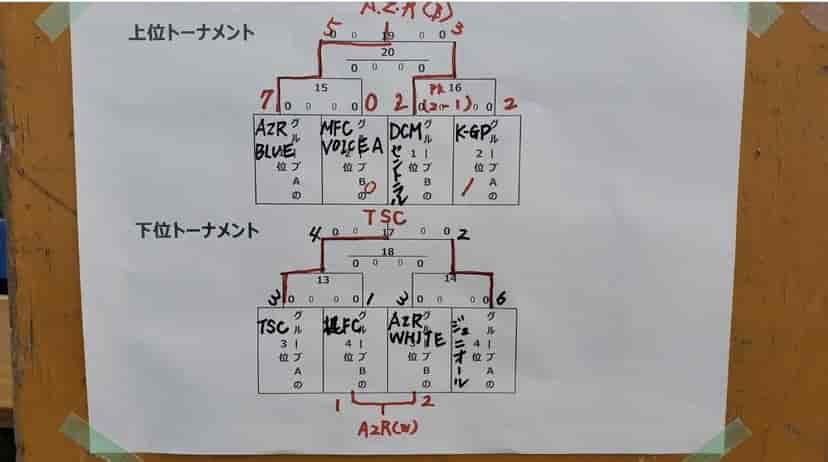 A.Z.R(B)
上位トーナメント
5 0 0 19 0 0 3
20
0 0 0 0
15 PK 16
7 0 0 0 0 0 2 0 (2-1) 0 2
AZR BLUE MFC VOICE A DCMセントラル K-GP
グループAの1位 グループBの2位 グループBの1位 グループAの2位
TSC
下位トーナメント
4 0 0 17 0 0 2
18
0 0 0 0
13 14
3 0 0 0 0 1 3 0 0 0 0 6
TSC 堤FC AZR WHITE ジュニオール
グループAの3位 グループBの4位 グループBの3位 グループAの4位
1 2
AZR(W)